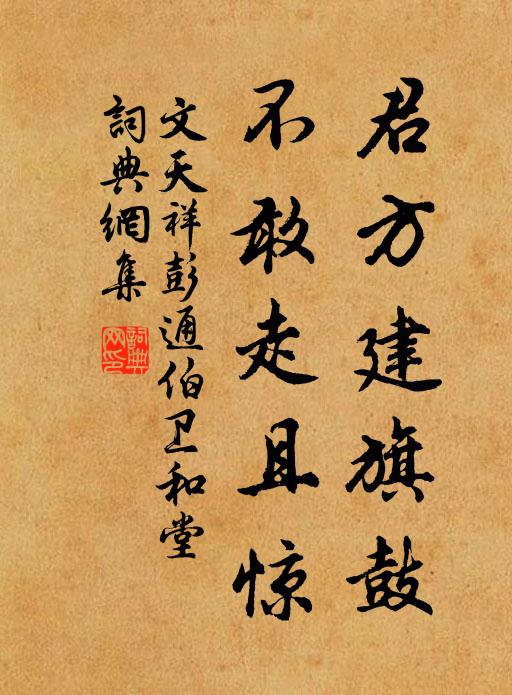 君方建旗鼓
不敢走且惊
文天祥彭通伯卫和堂
詞典網集
詞典網印